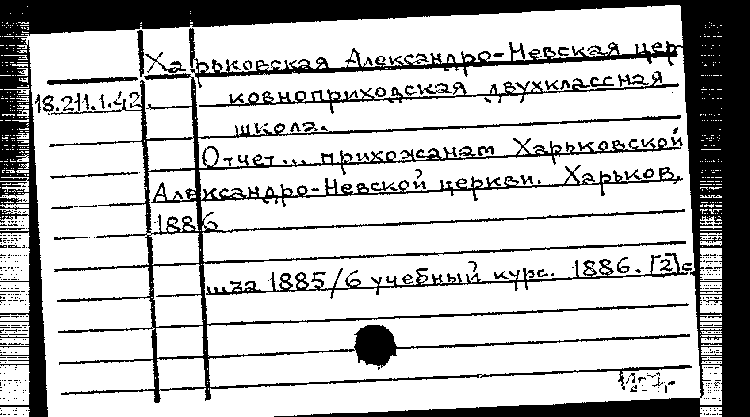 Харьковская Александро-Невская цер
18.211.1.42. ковноприходская двухклассная
школа.
Отчет... прихожанам Харьковской
Александро-Невской церкви. Харьков,
1886
...за 1885/6 учебный курс. 1886. [2]с